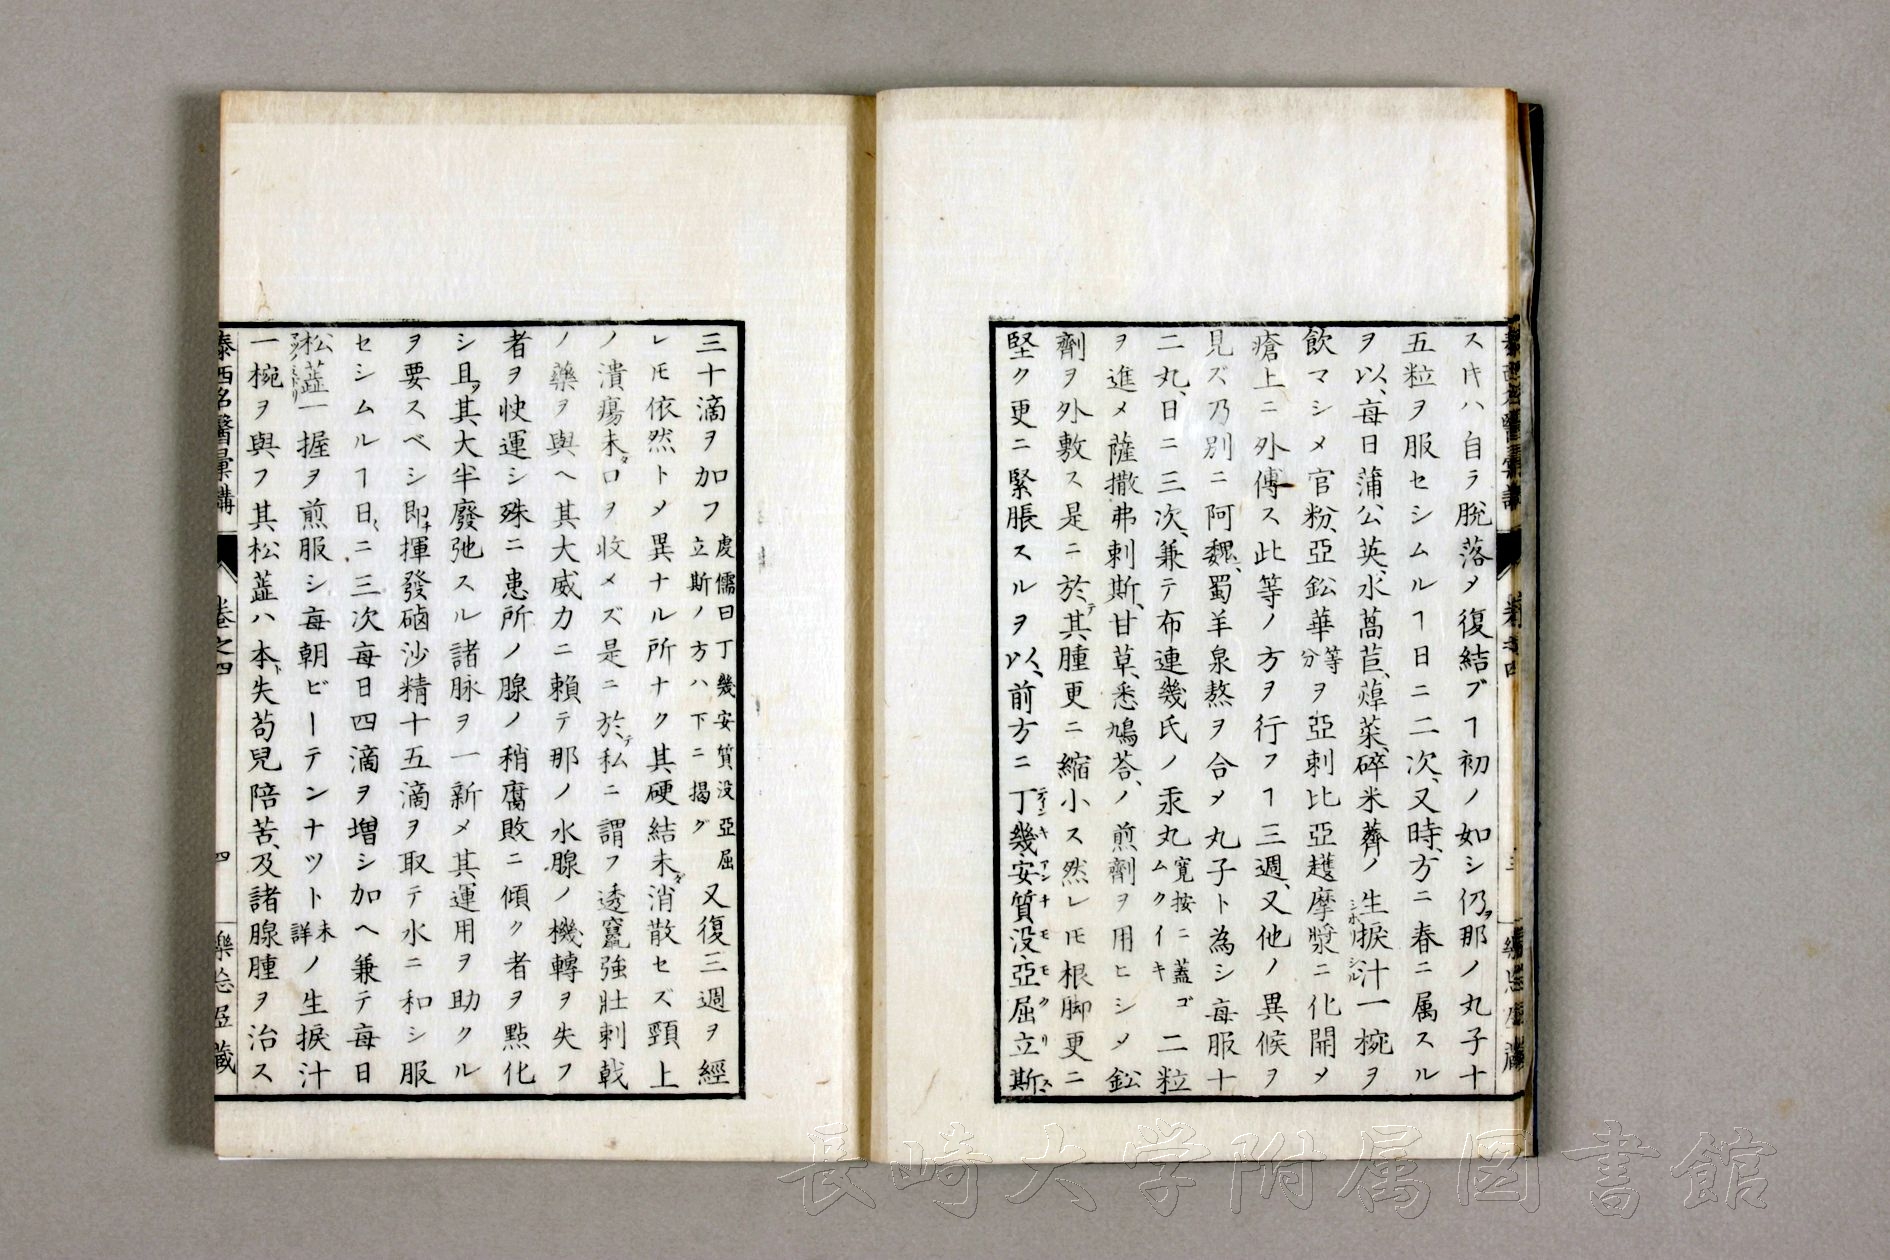 スキハ自ラ脱落メ復結ブヿ初ノ如シ仍ヲ那ノ丸子十
五粒ヲ服セシムルヿ日ニ二次、又時、方ニ春ニ属スル
ヲ以、毎日蒲公英、水萵苣、蔊菜、碎米薺ノ生捩汁一椀ヲ
飲マシメ官粉、亞鉛華等分ヲ亞刺比亞護摩漿ニ化開メ
瘡上ニ外傅ス此等ノ方ヲ行フヿ三週、又他ノ異候ヲ
見ズ乃別ニ阿魏、蜀羊泉熬ヲ合メ丸子ト為シ毎服十
二丸、日ニ三次、兼テ布連幾氏ノ汞丸寛按ニ蓋ゴムクイキ二粒
ヲ進メ薩撒弗剌斯、甘草、悉鳩荅、ノ煎劑ヲ用ヒシメ鉛
劑ヲ外敷ス是ニ於テ其腫更ニ縮小ス然レ𪜈根脚更ニ
堅ク更ニ緊脹スルヲ以、前方ニ丁幾安質没亞屈立斯
三十滴ヲ加フ虔儒曰丁幾安質没亞屈立斯ノ方ハ下ニ掲グ又復三週ヲ經
レ𪜈依然トメ異ナル所ナク其硬結未ダ消散セズ頸上
ノ潰瘍未ダ口ヲ收メズ是ニ於テ私ニ謂フ透竄強壯刺戟
ノ藥ヲ與ヘ其大威力ニ賴テ那ノ水腺ノ機轉ヲ失フ
者ヲ快運シ殊ニ患所ノ腺ノ稍腐敗ニ傾ク者ヲ點化
シ且ツ其大半廢弛スル諸脉ヲ一新メ其運用ヲ助クル
ヲ要スベシ即チ揮發磠沙精十五滴ヲ取テ水ニ和シ服
セシムルヿ日ニ三次毎日四滴ヲ増シ加ヘ兼テ毎日
松蕋一握ヲ煎服シ毎朝ビーテンナツト未詳ノ生捩汁
一椀ヲ與フ其松蕋ハ本ト失苟兒陪苦、及諸腺腫ヲ治ス
泰西名醫彙講 卷之四 四 樂誌亝藏
長崎大学附属図書館